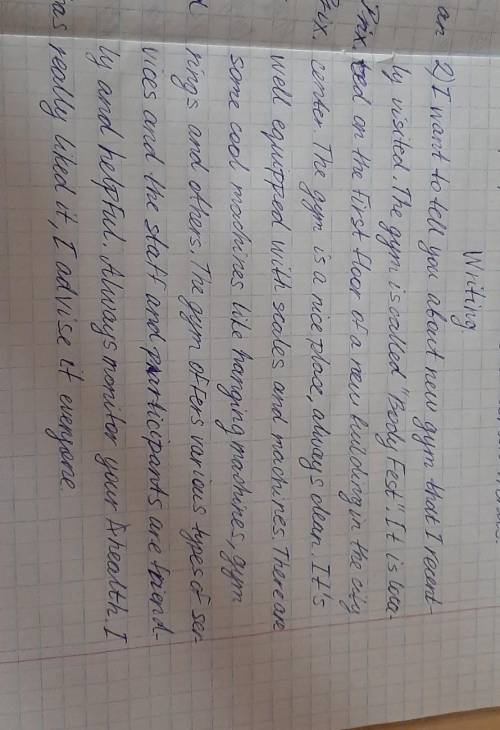 Writing.
an 2) I want to tell you about new gym that I recent-
ly visited. The gym is called "Body Fest". It is loca-
Prix, ted on the first floor of a new building in the city
center. The gym is a nice place, always clean. It's
well equipped with scales and machines. There are
some cool machines like hanging machines, gym
rings and others. The gym offers various types of ser-
vices and the staff and participants are friend-
ly and helpful. Always monitor your health. I
really liked it, I advise it everyone.